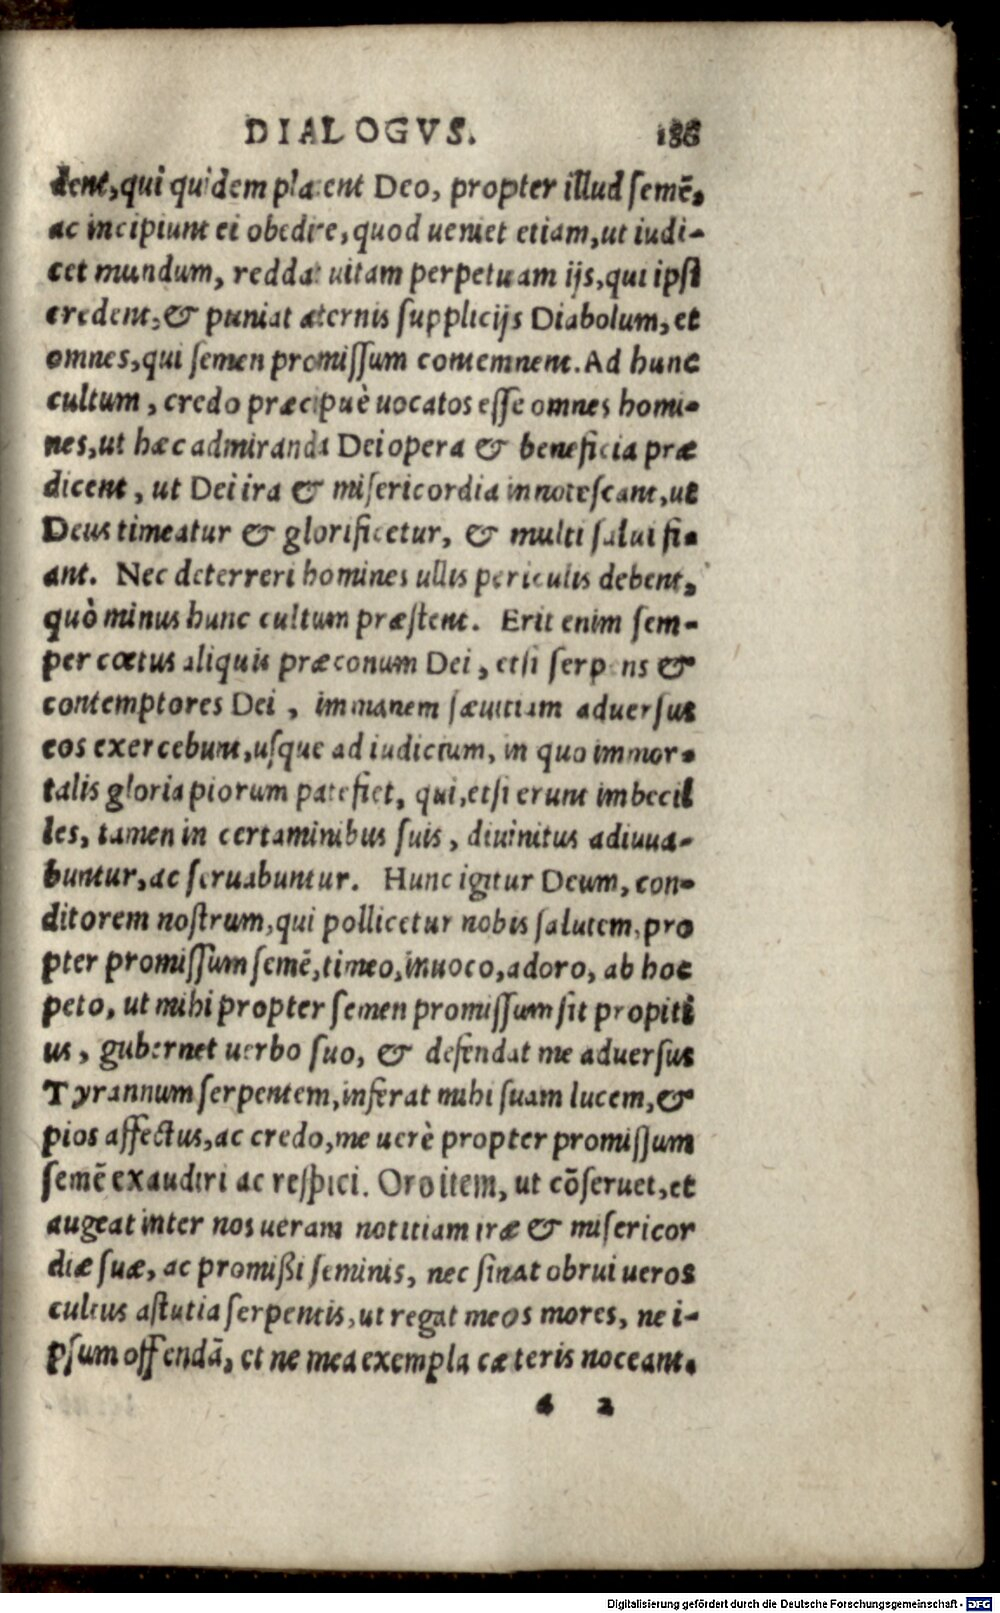 DIALOGVS. 186
dent, qui quidem placent Deo, propter illud semē,
ac incipiunt ei obedire, quod ueniet etiam, ut iudi-
cet mundum, reddat uitam perpetuam ijs, qui ipsi
credent, & puniat æternis supplicijs Diabolum, et
omnes, qui semen promissum contemnent. Ad hunc
cultum, credo præcipuè uocatos esse omnes homi-
nes, ut hæc admiranda Dei opera & beneficia præ
dicent, ut Dei ira & misericordia innotescant, ut
Deus timeatur & glorificetur, & multi salui fi-
ant. Nec deterreri homines ullis periculis debent,
quò minus hunc cultum præstent. Erit enim sem-
per cœtus aliquis præconum Dei, etsi serpens &
contemptores Dei, immanem sæuitiam aduersus
eos exercebunt, usque ad iudicium, in quo immor-
talis gloria piorum patefiet, qui, etsi erunt imbecil
les, tamen in certaminibus suis, diuinitus adiuua-
buntur, ac seruabuntur. Hunc igitur Deum, con-
ditorem nostrum, qui pollicetur nobis salutem, pro
pter promissum semē, timeo, inuoco, adoro, ab hoc
peto, ut mihi propter semen promissum sit propiti
us, gubernet uerbo suo, & defendat me aduersus
Tyrannum serpentem, inferat mihi suam lucem, &
pios affectus, ac credo, me uerè propter promissum
semē exaudiri ac respici. Oro item, ut cōseruet, et
augeat inter nos ueram notitiam iræ & misericor
diæ suæ, ac promißi seminis, nec sinat obrui ueros
cultus astutia serpentis, ut regat meos mores, ne i-
psum offendā, et ne mea exempla cæteris noceant.
a 2
Digitalisierung gefördert durch die Deutsche Forschungsgemeinschaft - DFG